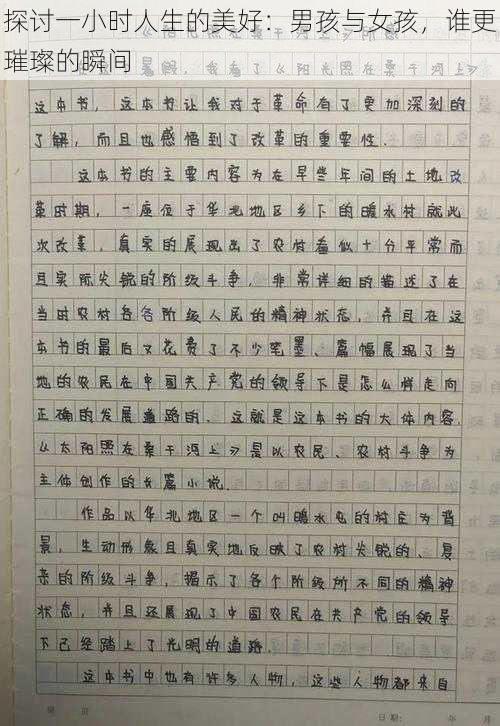 探讨一小时人生的美好：男孩与女孩，谁更
璀璨的瞬间
暑假，我看了《太阳照在桑干河上》
这本书，这本书让我对于革命有了更加深刻的
了解，而且也感悟到了改革的重要性．
这本书的主要内容为在早些年间的土地改
革时期，一座位于华北地区乡下的暖水村就此
次改革，真实的展现出了农村看似十分平常而
且实际尖锐的阶级斗争，非常详细的描述了在
当时农村各各阶级人民的精神状态，并且在这
本书的最后又花费了不少笔墨、篇幅展现了当
地的农民在中国共产党的领导下是怎么样走向
正确的发展道路的．这就是这本书的大体内容．
《太阳照在桑干河上》是以农民、农村斗争为
主体创作的长篇小说．
作品以华北地区一个叫暖水屯的村庄为背
景，生动形象且真实地反映了农村尖锐的、复
杂的阶级斗争，揭示了各个阶级所不同的精神
状态，并且还展现了中国农民在共产党的领导
下已经踏上了光明的道路．
这本书中也有许多人物，这些人物都来自
页
日期：
年